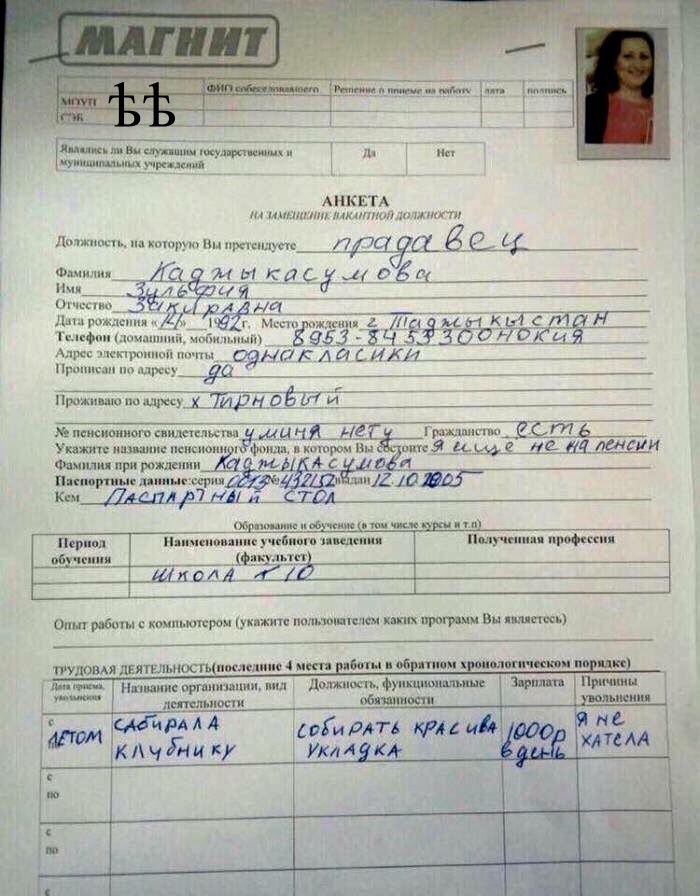 МАГНИТ
ФИО собеседовавшего Решение о приеме на работу дата подпись
МОУП ѢѢ
СЭБ
Являлись ли Вы служащим государственных и муниципальных учреждений Да Нет
АНКЕТА
НА ЗАМЕЩЕНИЕ ВАКАНТНОЙ ДОЛЖНОСТИ
Должность, на которую Вы претендуете прадавец
Фамилия Каджыкасумова
Имя Зульфия
Отчество Закиравна
Дата рождения «14» 1992г. Место рождения г Таджыкыстан
Телефон (домашний, мобильный) 8953-8453300нокия
Адрес электронной почты однакласики
Прописан по адресу да
Проживаю по адресу х Тирновый
№ пенсионного свидетельства у миня нету Гражданство есть
Укажите название пенсионного фонда, в котором Вы состоите я ище не на пенсии
Фамилия при рождении Каджыкасумова
Паспортные данные:серия 0013№432152выдан 12.10.2005
Кем Паспартный стол
Образование и обучение (в том числе курсы и т.п)
Период обучения Наименование учебного заведения (факультет) Полученная профессия
школа 10
Опыт работы с компьютером (укажите пользователем каких программ Вы являетесь)
ТРУДОВАЯ ДЕЯТЕЛЬНОСТЬ(последние 4 места работы в обратном хронологическом порядке)
Дата приема, увольнения Название организации, вид деятельности Должность, функциональные обязанности Зарплата Причины увольнения
с летом сабирала клубнику собирать красива укладка 1000р в день я не хатела
с
по
с
по
с